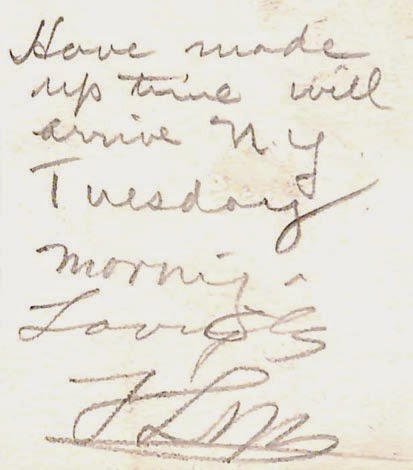 Have made
up time will
arrive N.Y.
Tuesday
morning -
Lovingly